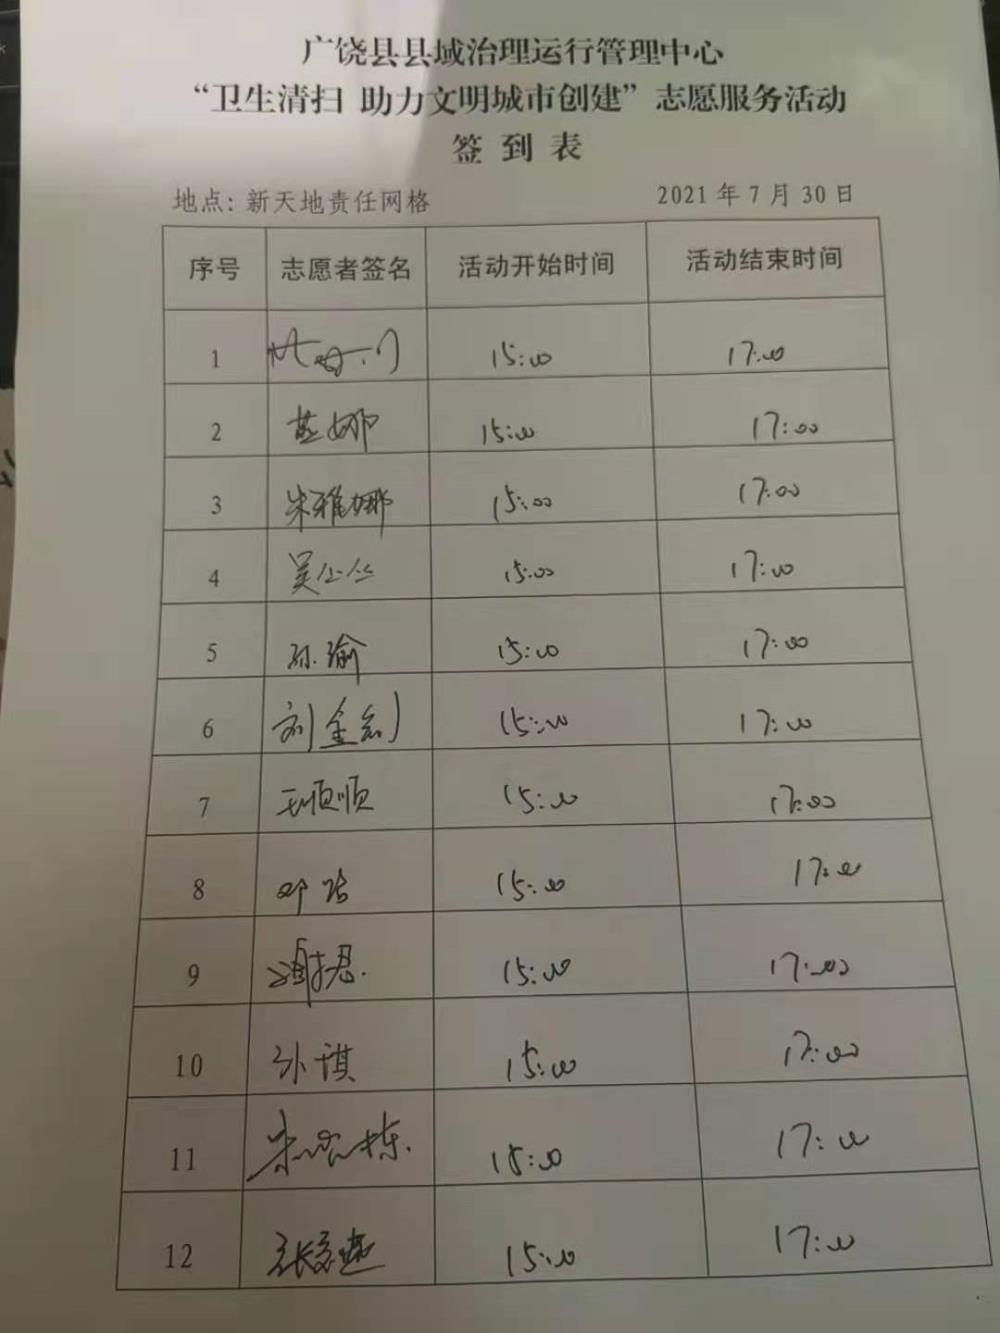 广饶县县域治理运行管理中心
“卫生清扫 助力文明城市创建”志愿服务活动
签到表
地点：新天地责任网格 2021年7月30日
序号 志愿者签名 活动开始时间 活动结束时间
1 15:00 17:00
2 15:00 17:00
3 朱雅娜 15:00 17:00
4 吴 15:00 17:00
5 孙瑜 15:00 17:00
6 刘金 15:00 17:00
7 王顺顺 15:00 17:00
8 邓 15:00 17:00
9 15:00 17:00
10 孙琪 15:00 17:00
11 栋 15:00 17:00
12 张 15:00 17:00